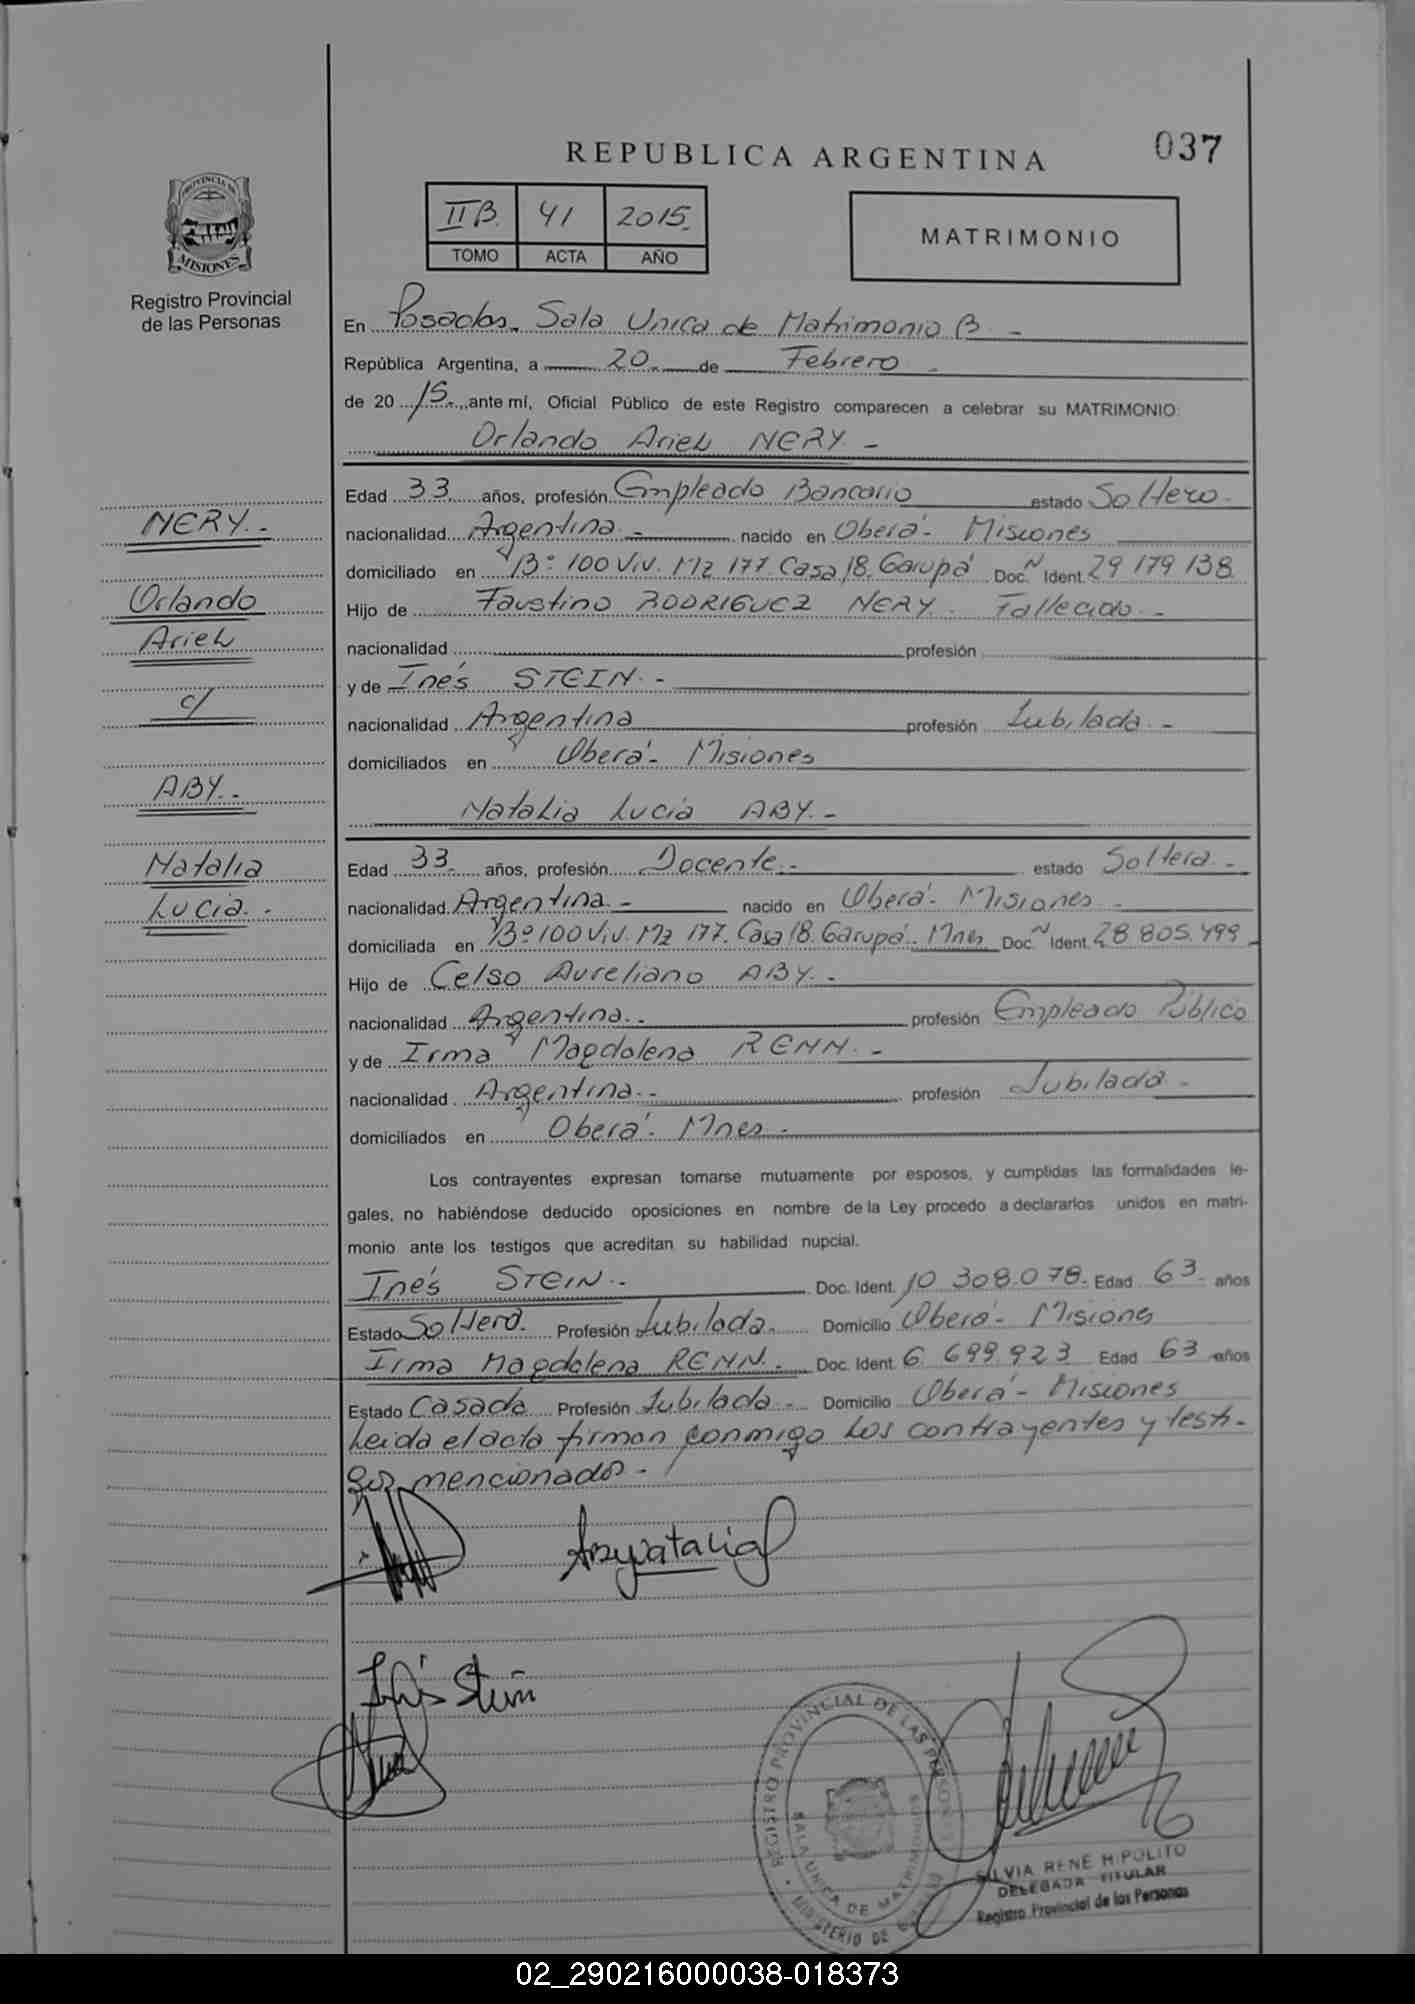 037
REPUBLICA ARGENTINA
PROVINCIA DE
MISIONES
Registro Provincial
de las Personas
IIB. 41 2015.
TOMO ACTA AÑO
MATRIMONIO
En Posadas. Sala Unica de Matrimonio B -
República Argentina, a 20 de Febrero -
de 20 15, ante mí, Oficial Público de este Registro comparecen a celebrar su MATRIMONIO:
Orlando Ariel NERY -
Edad 33 años, profesión Empleado Bancario estado Soltero -
NERY.-
nacionalidad Argentina - nacido en Oberá - Misiones
domiciliado en B° 100 Viv. Mz 177. Casa 18. Garupá Doc. N Ident. 29 179 138
Orlando
Hijo de Faustino RODRIGUEZ NERY. Fallecido -
Ariel
nacionalidad profesión
y de Inés STEIN. -
c/
nacionalidad Argentina profesión Jubilada -
domiciliados en Oberá - Misiones
ABY.-
Natalia Lucia ABY. -
Natalia
Edad 33 años, profesión Docente - estado Soltera -
Lucia. -
nacionalidad Argentina - nacido en Oberá - Misiones -
domiciliada en B° 100 Viv. Mz 177. Casa 18. Garupá. Mnes Doc. N Ident. 28 805.499 -
Hijo de Celso Aureliano ABY. -
nacionalidad Argentina. - profesión Empleado Público
y de Irma Magdalena RENN. -
nacionalidad Argentina. - profesión Jubilada -
domiciliados en Oberá - Mnes -
Los contrayentes expresan tomarse mutuamente por esposos, y cumplidas las formalidades le-
gales, no habiéndose deducido oposiciones en nombre de la Ley procedo a declararlos unidos en matri-
monio ante los testigos que acreditan su habilidad nupcial.
Inés STEIN. - Doc. Ident. 10 308.078. Edad 63 años
Estado Soltera. Profesión Jubilada. Domicilio Oberá - Misiones
Irma Magdalena RENN. - Doc. Ident. 6 699.923 Edad 63 años
Estado Casada Profesión Jubilada - Domicilio Oberá - Misiones
Leida el acta firman conmigo los contrayentes y testi-
gos mencionados -
Aby Natalia
Inés Stein
REGISTRO PROVINCIAL DE LAS PERSONAS
SALA UNICA DE MATRIMONIO
MINISTERIO DE
SILVIA RENE HIPOLITO
DELEGADA TITULAR
Registro Provincial de las Personas
02_290216000038-018373